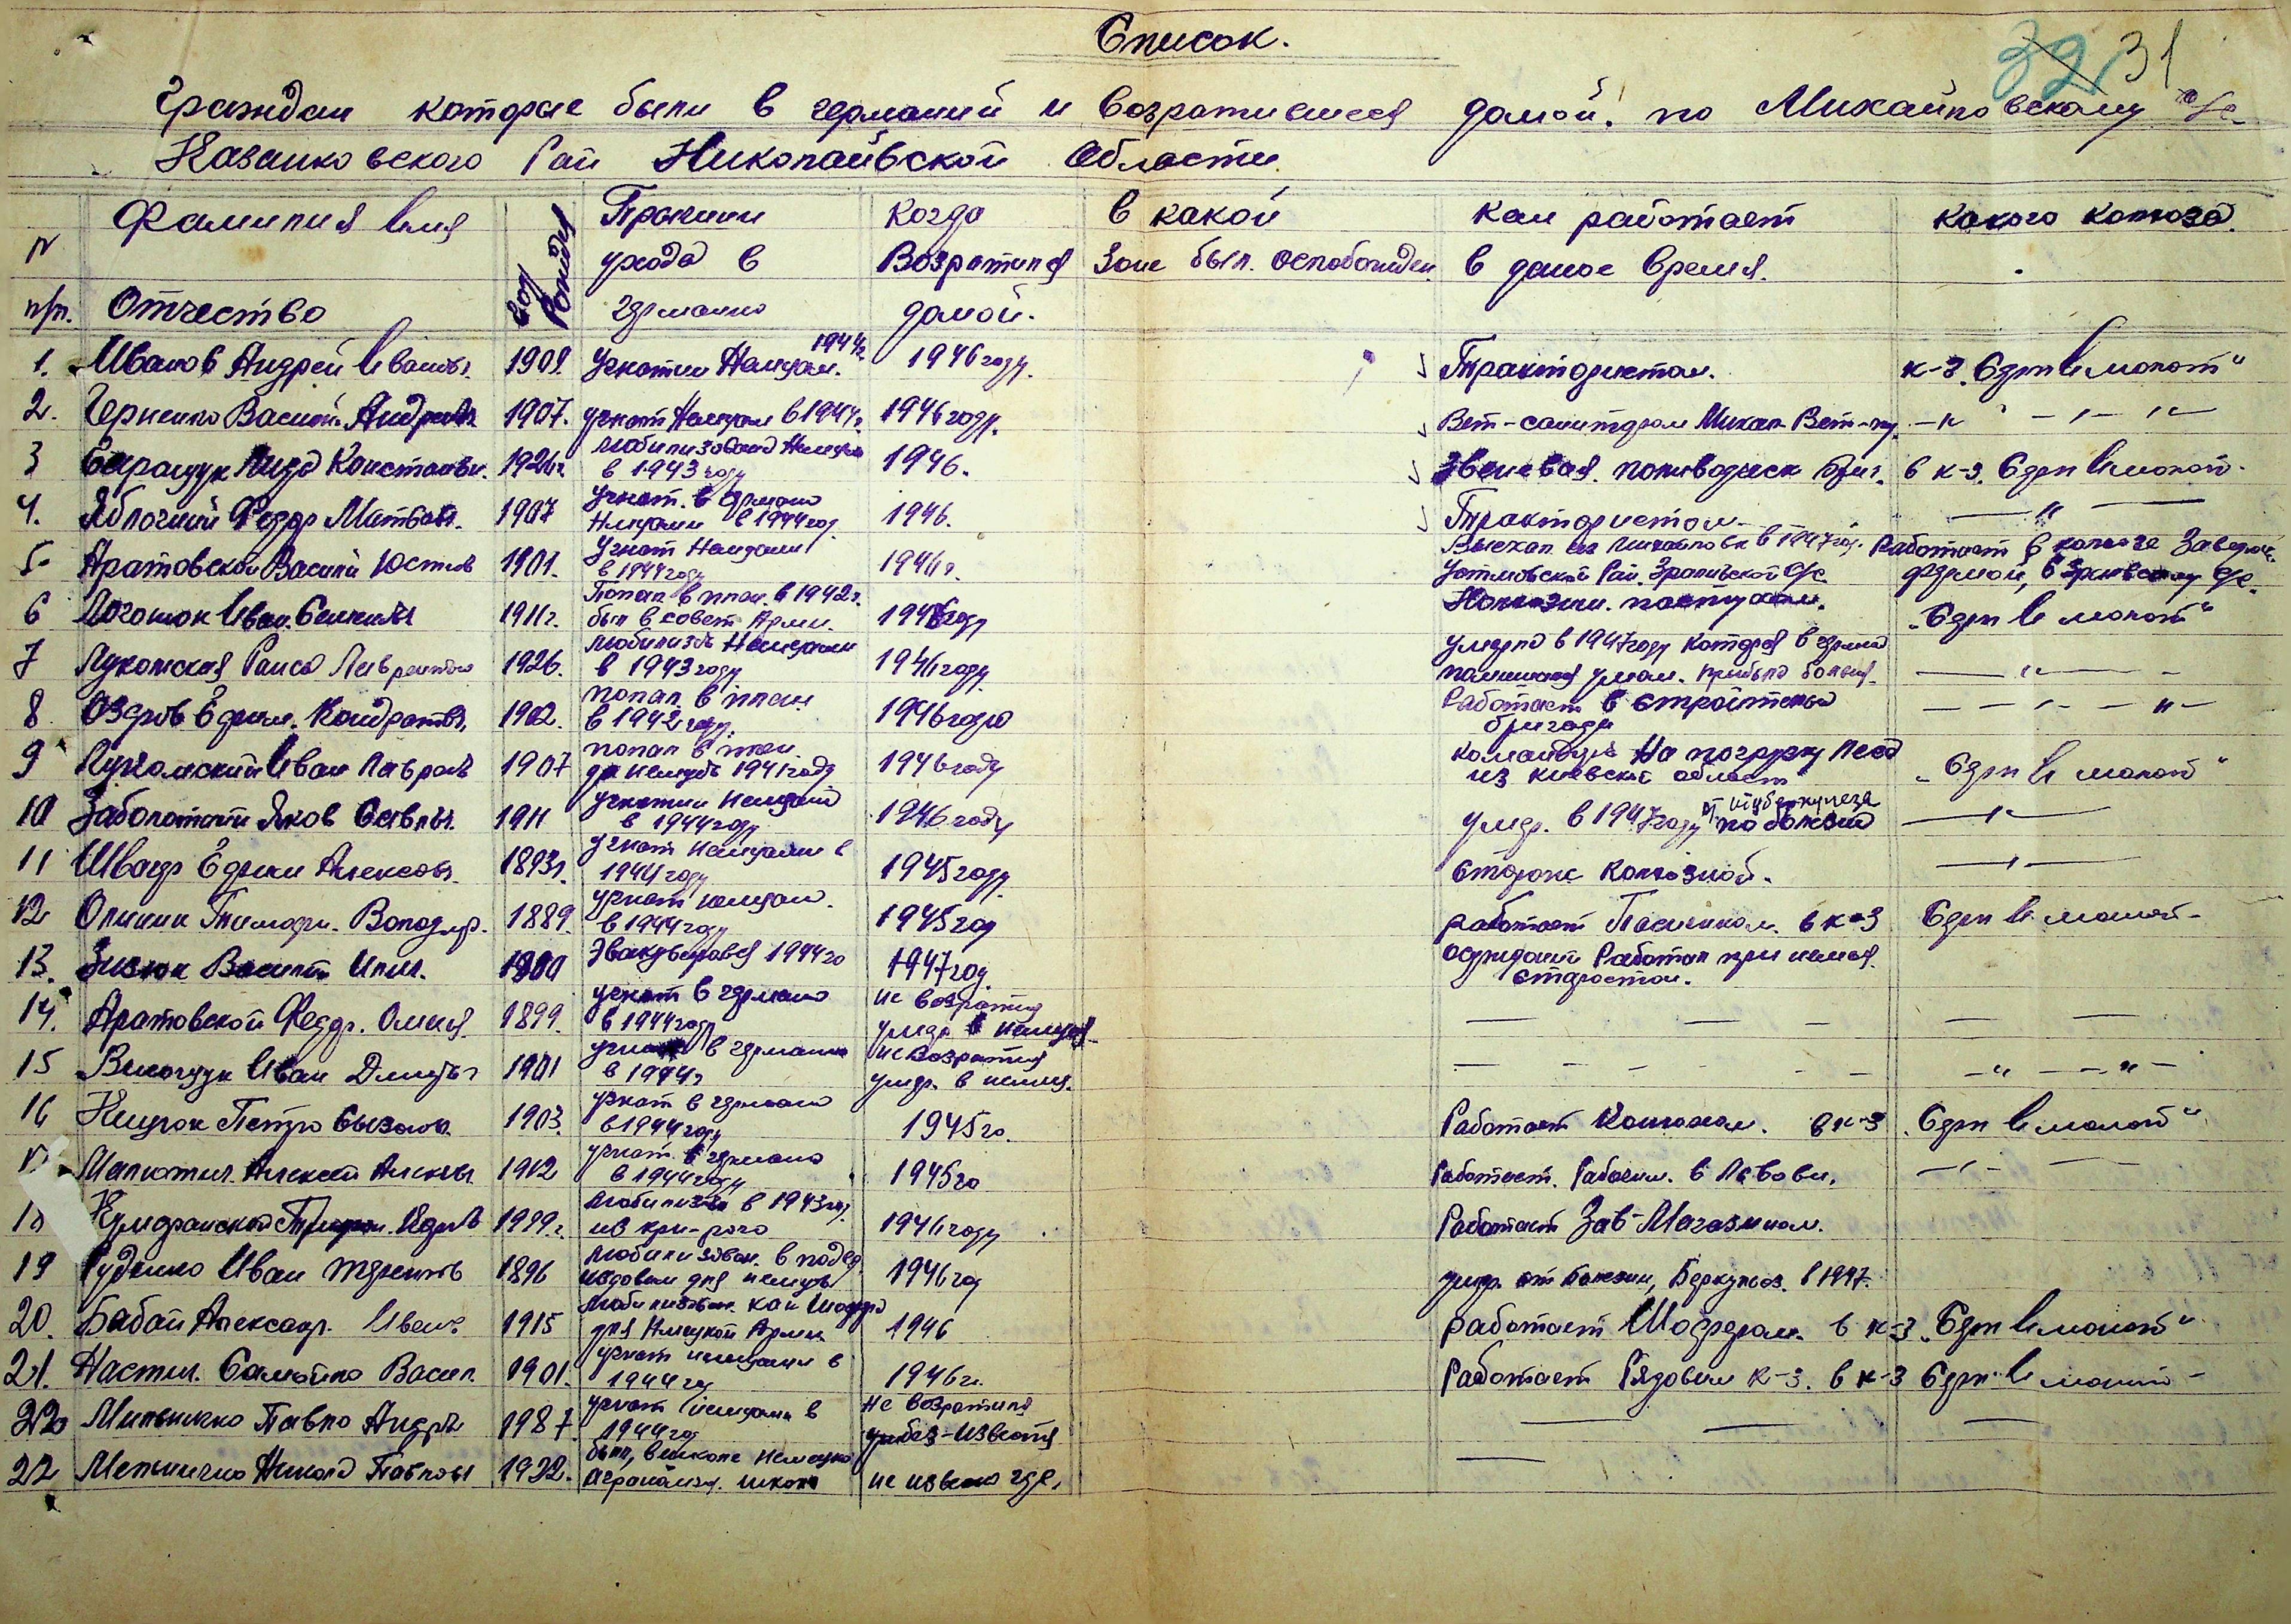 Список.
32 31
Граждан которые были в германий и возратившеся домой. по Михайловскому с/с
Казанковского Рай Николаивской Области
N п/п. Фамилия Имя Отчество год рожден Причини ухода в германию когда Возратился домой. в какой Зоне был. освобожден кем работает в даное время. какого колхоза.
1. Иванов Андрей Иванов. 1909. угнатии Немцам. 1944г. 1946 году. Трактористом. к-з "Серп и молот"
2. Черненко Василь. Андреев 1907. угнат Немцам в 1944г. 1946 году. Вет-санитаром Михай. Вет-пу. -"- -"-
3 Лида Констант. 1926г. мобилизована Немцам в 1943 году 1946. Звеневая. полеводческ бриг. в к-з. Серп и молот.
4. Яблочний Федор Матвеев. 1907 угнат. в германию Немцами в 1944 год. 1946. Трактористом -"-
5 Аратовской Василий Юстов 1901. Угнат Немцами в 1944 году 1946г. Виехал из Михайловки в 1947 год. Рай. с/с. Работает в колхозе Заведующ. фермой, в с/с.
6 Иван. 1911г. Попал в плен. в 1942г. был в совет Арми. 1946 году "Серп и молот"
7 Лукомская Раиса Лаврентов 1926. мобилизов Немцами в 1943 году 1946 году умерла в 1947 году которая в германи прибыла больная. -"-
8. Озеров Ефим. Кондратов. 1902. попал в плен в 1942 году. 1946 году Работает в строительн бригади -"-
9 Лукомский Иван Лаврен 1907 попал в плен до немцев 1941 году 1946 году командирв на погрузку Леса из киевской област "Серп и молот"
10 Заболотний Яков Савель. 1911 угнатии Немцами в 1944 году 1946 году умер. в 1947 году от туберкулеза по болезни -"-
11 Швагр Ефим Алексеев. 1893г. угнат Немцами в 1944 году 1945 году. сторож колхозной. -"-
12 Тимофи. Володмр. 1889. угнат немцам. в 1944 году 1945 год работает Пасичником. в к-з Серп и молот-
13. Зизюк Васили 1900 Эвакуировався 1944го 1947 год. осуждоний Работал при немцах. старостом.
14. Аратовской Федор. 1899. угнат в германию в 1944 году не возратился умер в немцях — — — — —
15 Винничук Иван Дмитр. 1901 угнат в германию в 1944г не Возратился умер. в немец. - - - -"- -"-
16 Петро 1903. угнат в германию в 1944 году 1945го. Работает Конюхом. в к-з "Серп и молот"
17 Алексей Алексеев. 1912 угнат. в германию в 1944 году 1945го Работает. Рабочим. в Львови. -"-
18 1899г. мобилизов в 1943 год. из кри-рога 1946 году Работает Зав-Магазином.
19 Руденко Иван Терентев 1896 мобилизован. в подвод ездовим для немцев 1946 год умер. от болезни, Беркулоз. в 1947.
20. Бабай Александр. Иванов 1915 мобилизован. как шофера для Немецкой Армии 1946 Работает Шофером. в к-з "Серп и молот"
21. Настич. Самойло Васил. 1901. угнат немцами в 1944 год 1946г. Работает Рядовым к-з. в к-з Серп и молот -
22 Мельничко Павло Андре 1987. угнат немцами в 1944 год Не возратился без-известя — — —
22 Мельничко Никола Павлов 1922. был, в школе Немецко Агрономич. школи не известно где. —